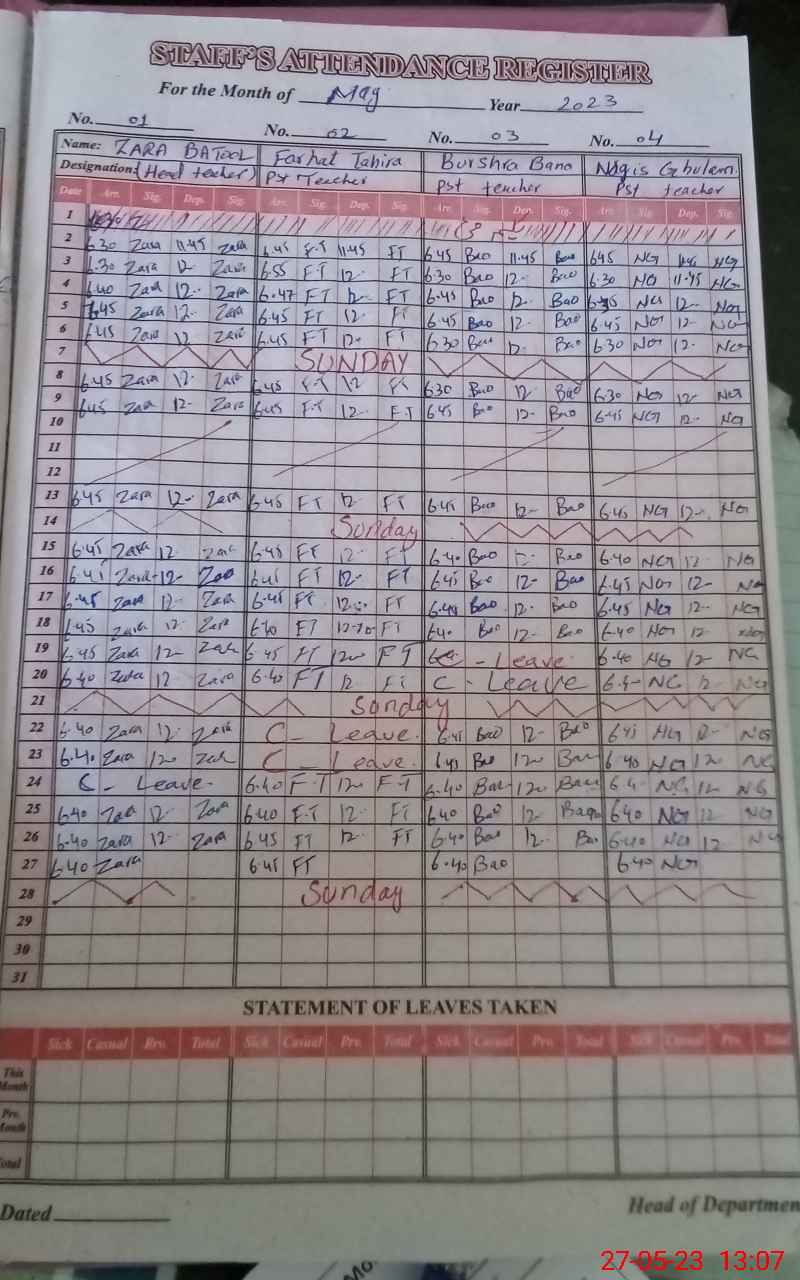 STAFF'S ATTENDANCE REGISTER
For the Month of May Year 2023
No. 01 No. 02 No. 03 No. 04
Name: ZARA BATOOL Farhat Tahira Burshra Bano Nagis Ghulam
Designation: (Head teacher) Pst Teacher Pst teacher Pst teacher
Date Arr. Sig. Dep. Sig. Arr. Sig. Dep. Sig. Arr. Sig. Dep. Sig. Arr. Sig. Dep. Sig.
1
2 6.30 Zara 11.45 Zara 6.45 F.T 11.45 FT 6.45 Bao 11.45 Bao 6.45 NG NG
3 6.30 Zara 12 Zara 6.55 F.T 12 FT 6.30 Bao 12- Bao 6.30 NG 11.45 NG
4 6.40 Zara 12. Zara 6.47 FT 12 FT 6.45 Bao 12 Bao NG 12- NG
5 6.45 Zara 12. Zara 6.45 FT 12 FT 6.45 Bao 12. Bao 6.45 NG 12- NG
6 6.45 Zara 12 Zara 6.45 FT 12. FT 6.30 Bao 12. Bao 6.30 NG 12- NG
7 SUNDAY
8 6.45 Zara 12- Zara 6.45 F.T 12 FT 6.30 Bao 12. Bao 6.30 NG 12- NG
9 6.45 Zara 12- Zara 6.45 F.T 12. F.T 6.45 Bao 12- Bao 6.45 NG 12. NG
10
11
12
13 6.45 Zara 12-. Zara 6.45 FT 12 FT 6.45 Bao 12- Bao 6.45 NG 12-. NG
14 Sunday
15 6.45 Zara 12 Zara 6.45 FT 12- FT 6.40 Bao Bao 6.40 NG 12- NG
16 6.45 Zara 12- Zara 6.45 FT 12- FT 6.45 Bao 12- Bao 6.45 NG 12- NG
17 6.45 Zara 12- Zara 6.45 FT FT 6.45 Bao 12- Bao 6.45 NG 12-. NG
18 6.45 Zara 12- Zara FT FT 6.40 Bao 12- Bao 6.40 NG 12
19 6.45 Zara 12- Zara 6.45 FT 1200 FT C - Leave 6.40 NG 12 NG
20 6.40 Zara 12 Zara 6.40 FT 12 FT C - Leave NG 12 NG
21 Sunday
22 6.40 Zara 12. Zara C - Leave. 6.45 Bao 12- Bao 6.45 NG NG
23 6.40 Zara Zara C - Leave. 6.45 Bao Bao 6.40 NG NG
24 C - Leave- 6.40 F.T F.T 6.40 Bao Bao NG 12 NG
25 6.40 Zara 12. Zara 6.40 F.T 12. FT 6.40 Bao 12- 6.40 NG 12 NG
26 6.40 Zara 12. Zara 6.45 FT 12. FT 6.40 Bao 12. Bao 6.40 NG 12 NG
27 6.40 Zara 6.45 FT 6.40 Bao 6.40 NG
28 Sunday
29
30
31
STATEMENT OF LEAVES TAKEN
Sick Casual Prv. Total Sick Casual Pre. Total Sick Casual Pre. Total Sick Casual Pre. Total
This Month
Pre. Month
Total
Dated Head of Departmen
27-05-23 13:07